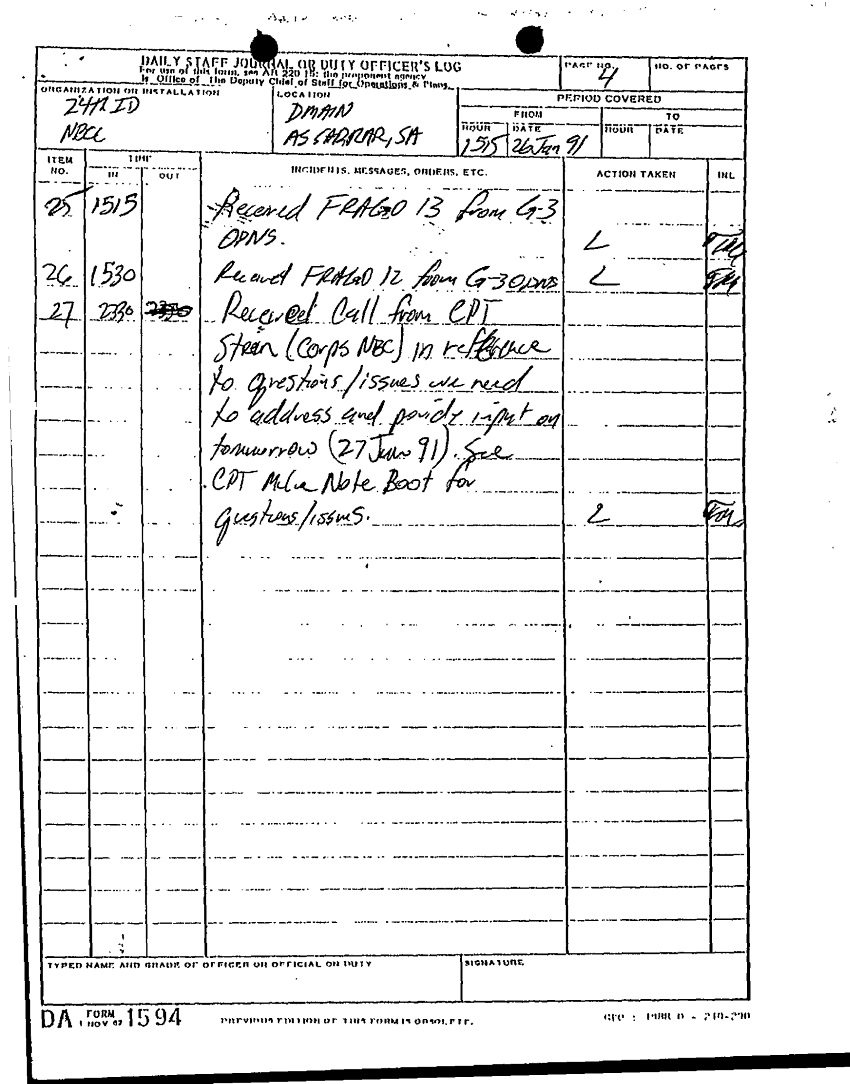 DAILY STAFF JOURNAL OR DUTY OFFICER'S LOG
For use of this form, see AR 220-15; the proponent agency
is Office of The Deputy Chief of Staff for Operations & Plans.
PAGE NO.
4
NO. OF PAGES
ORGANIZATION OR INSTALLATION
24th ID
NBCC
LOCATION
DMAIN
AS SARRAR, SA
PERIOD COVERED
FROM
TO
HOUR
DATE
HOUR
DATE
1515
26 Jan 91
ITEM NO.
TIME
IN
OUT
INCIDENTS, MESSAGES, ORDERS, ETC.
ACTION TAKEN
INL
25 1515 Received FRAGO 13 from G-3
OPNS. L
26 1530 Received FRAGO 12 from G-3 OPNS L
27 2330 2330 Received Call from CPT
(Corps NBC) in reference
to questions/issues we need
to address and provide input on
tomorrow (27 Jan 91). See
CPT Note Book for
questions/issues. L
TYPED NAME AND GRADE OF OFFICER OR OFFICIAL ON DUTY
SIGNATURE
DA FORM 1 NOV 62 1594
PREVIOUS EDITION OF THIS FORM IS OBSOLETE.